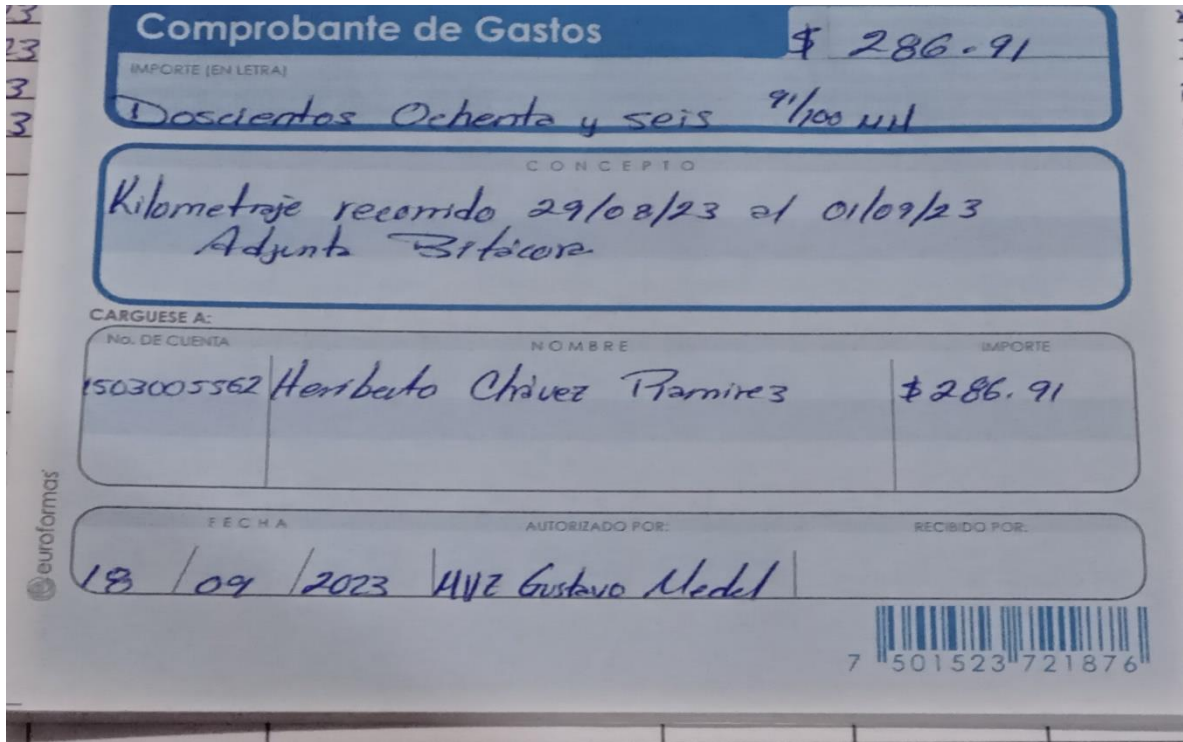 Comprobante de Gastos
$ 286.91
IMPORTE (EN LETRA)
Doscientos Ochenta y seis 91/100 MN
CONCEPTO
Kilometraje recorrido 29/08/23 al 01/09/23
Adjunto Bitácora
CARGUESE A:
No. DE CUENTA NOMBRE IMPORTE
1503005562 Heriberto Chávez Ramirez $286.91
FECHA AUTORIZADO POR: RECIBIDO POR:
18/09/2023 MVZ Gustavo Medel
euroformas
7 501523 721876
23
3
3